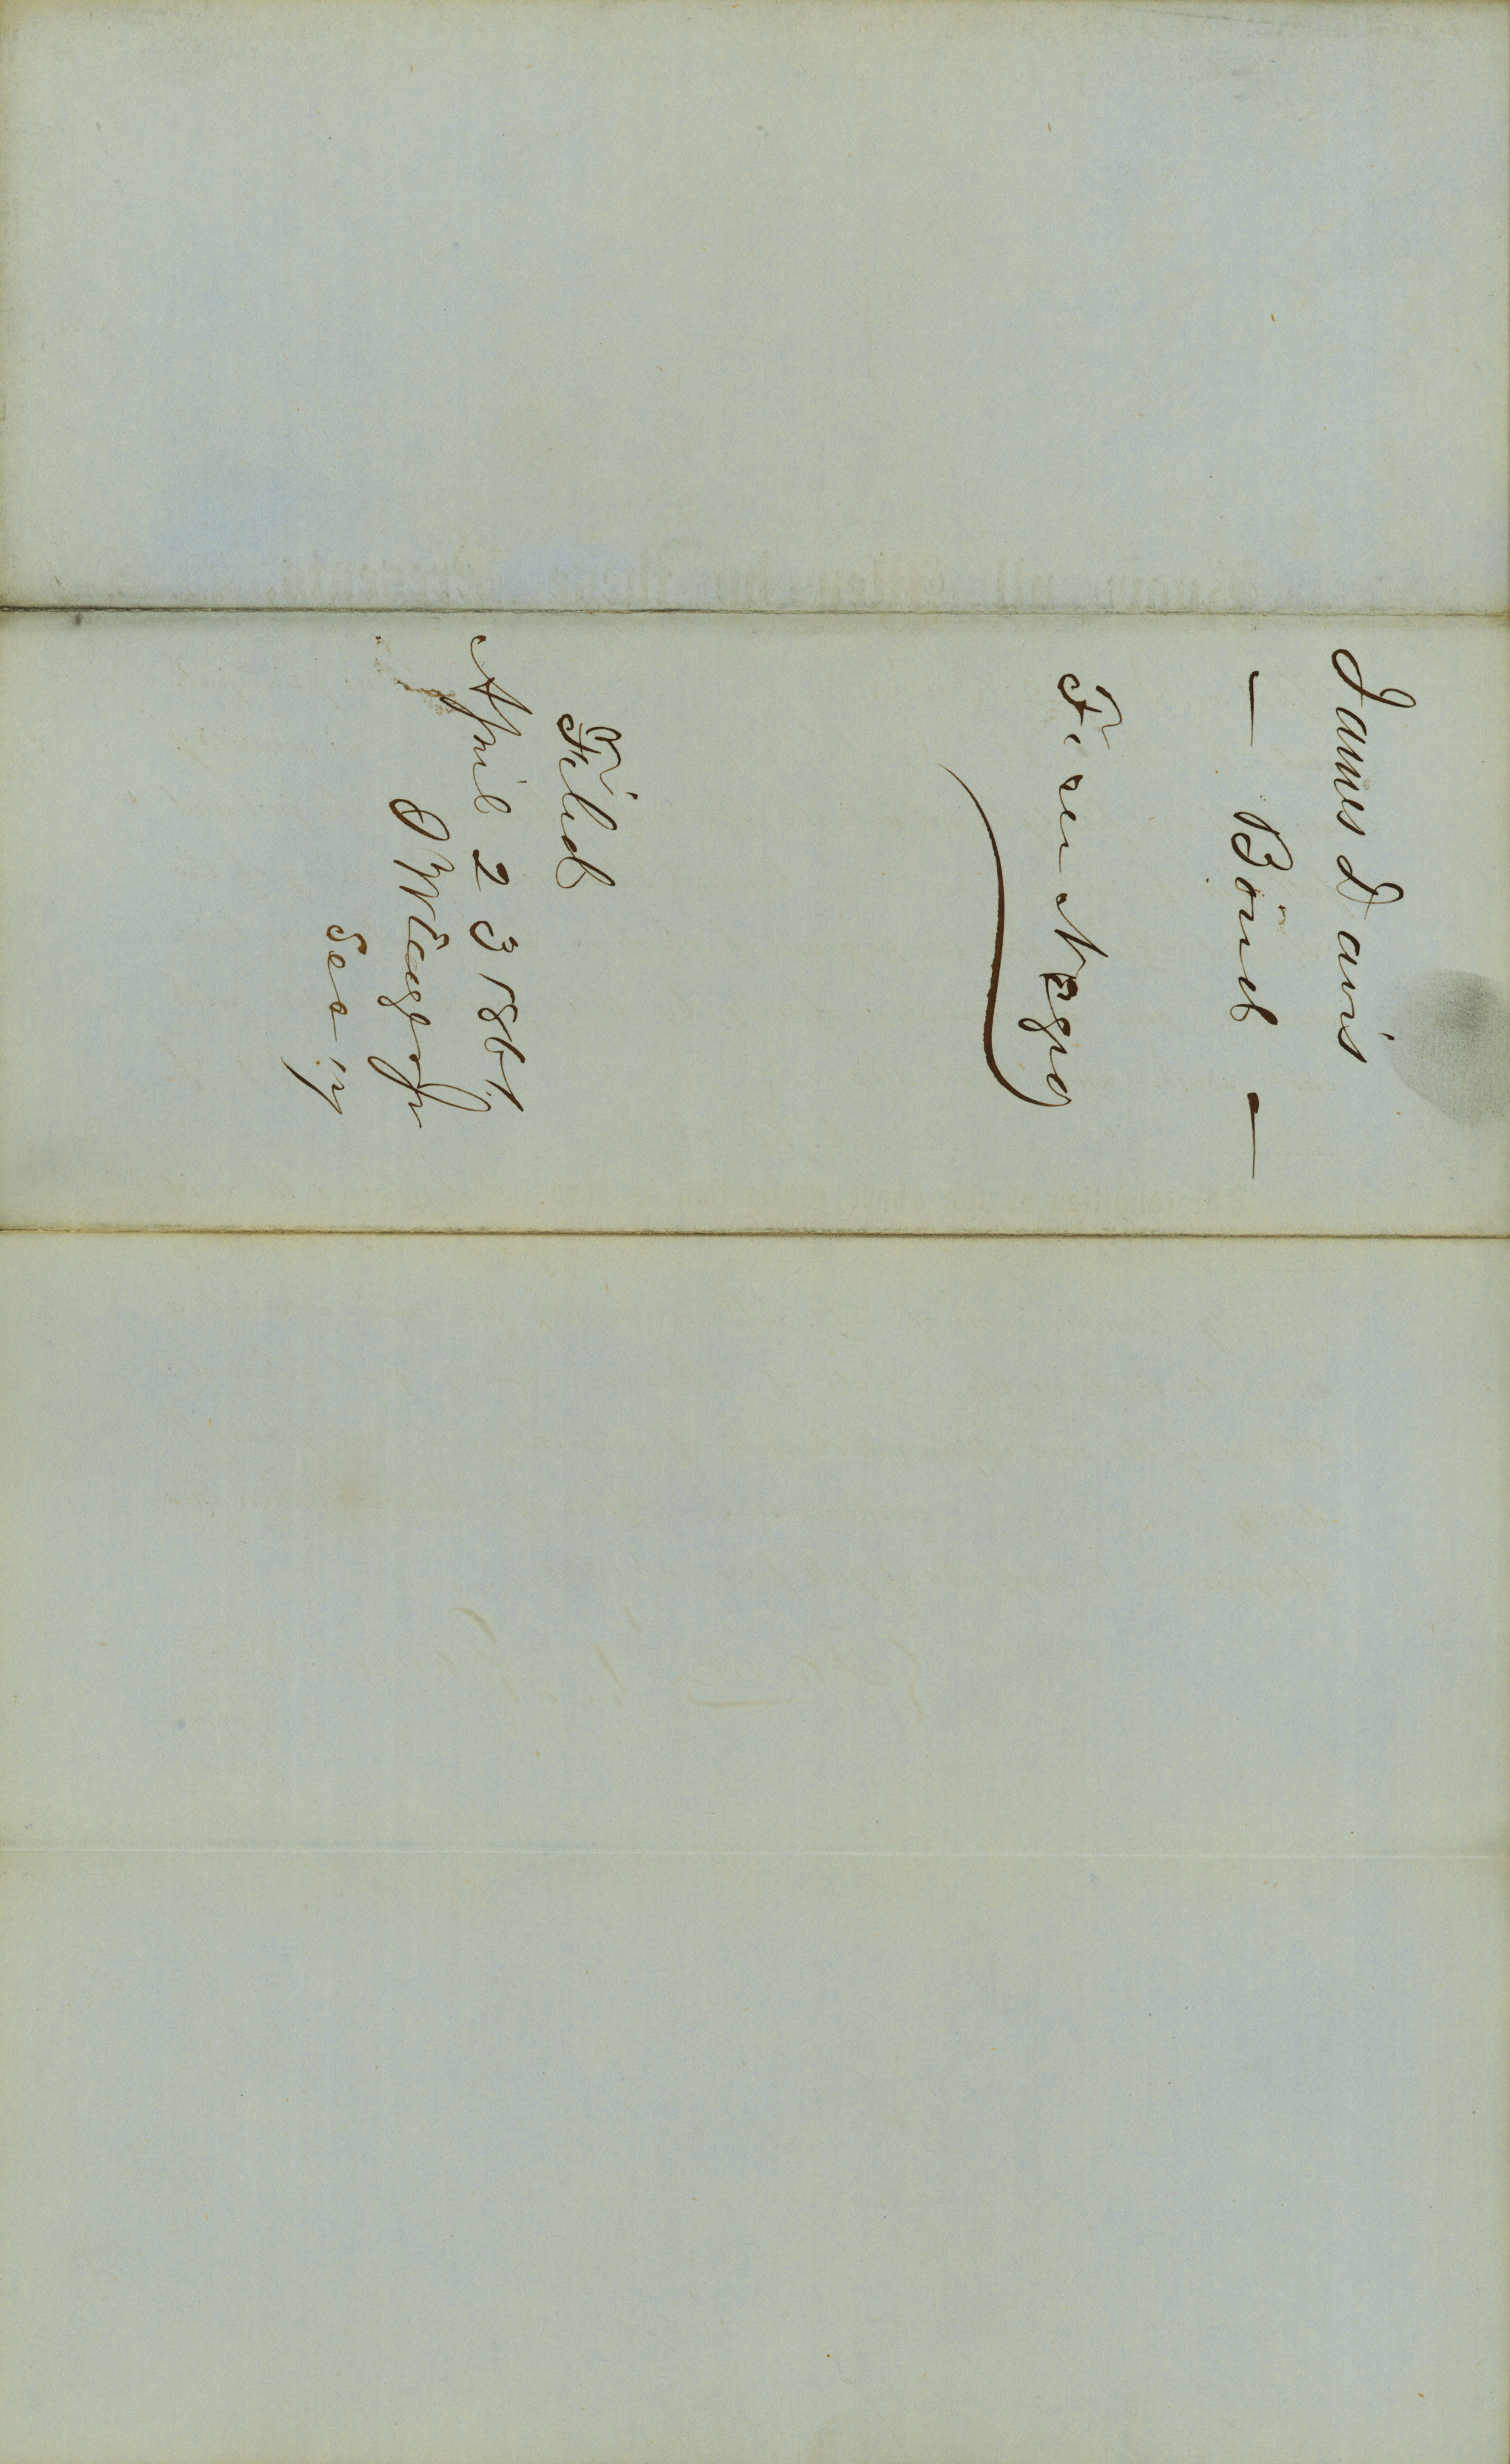 James Davis
— Bond —
Free Negro
Filed
April 23 1861
Secy